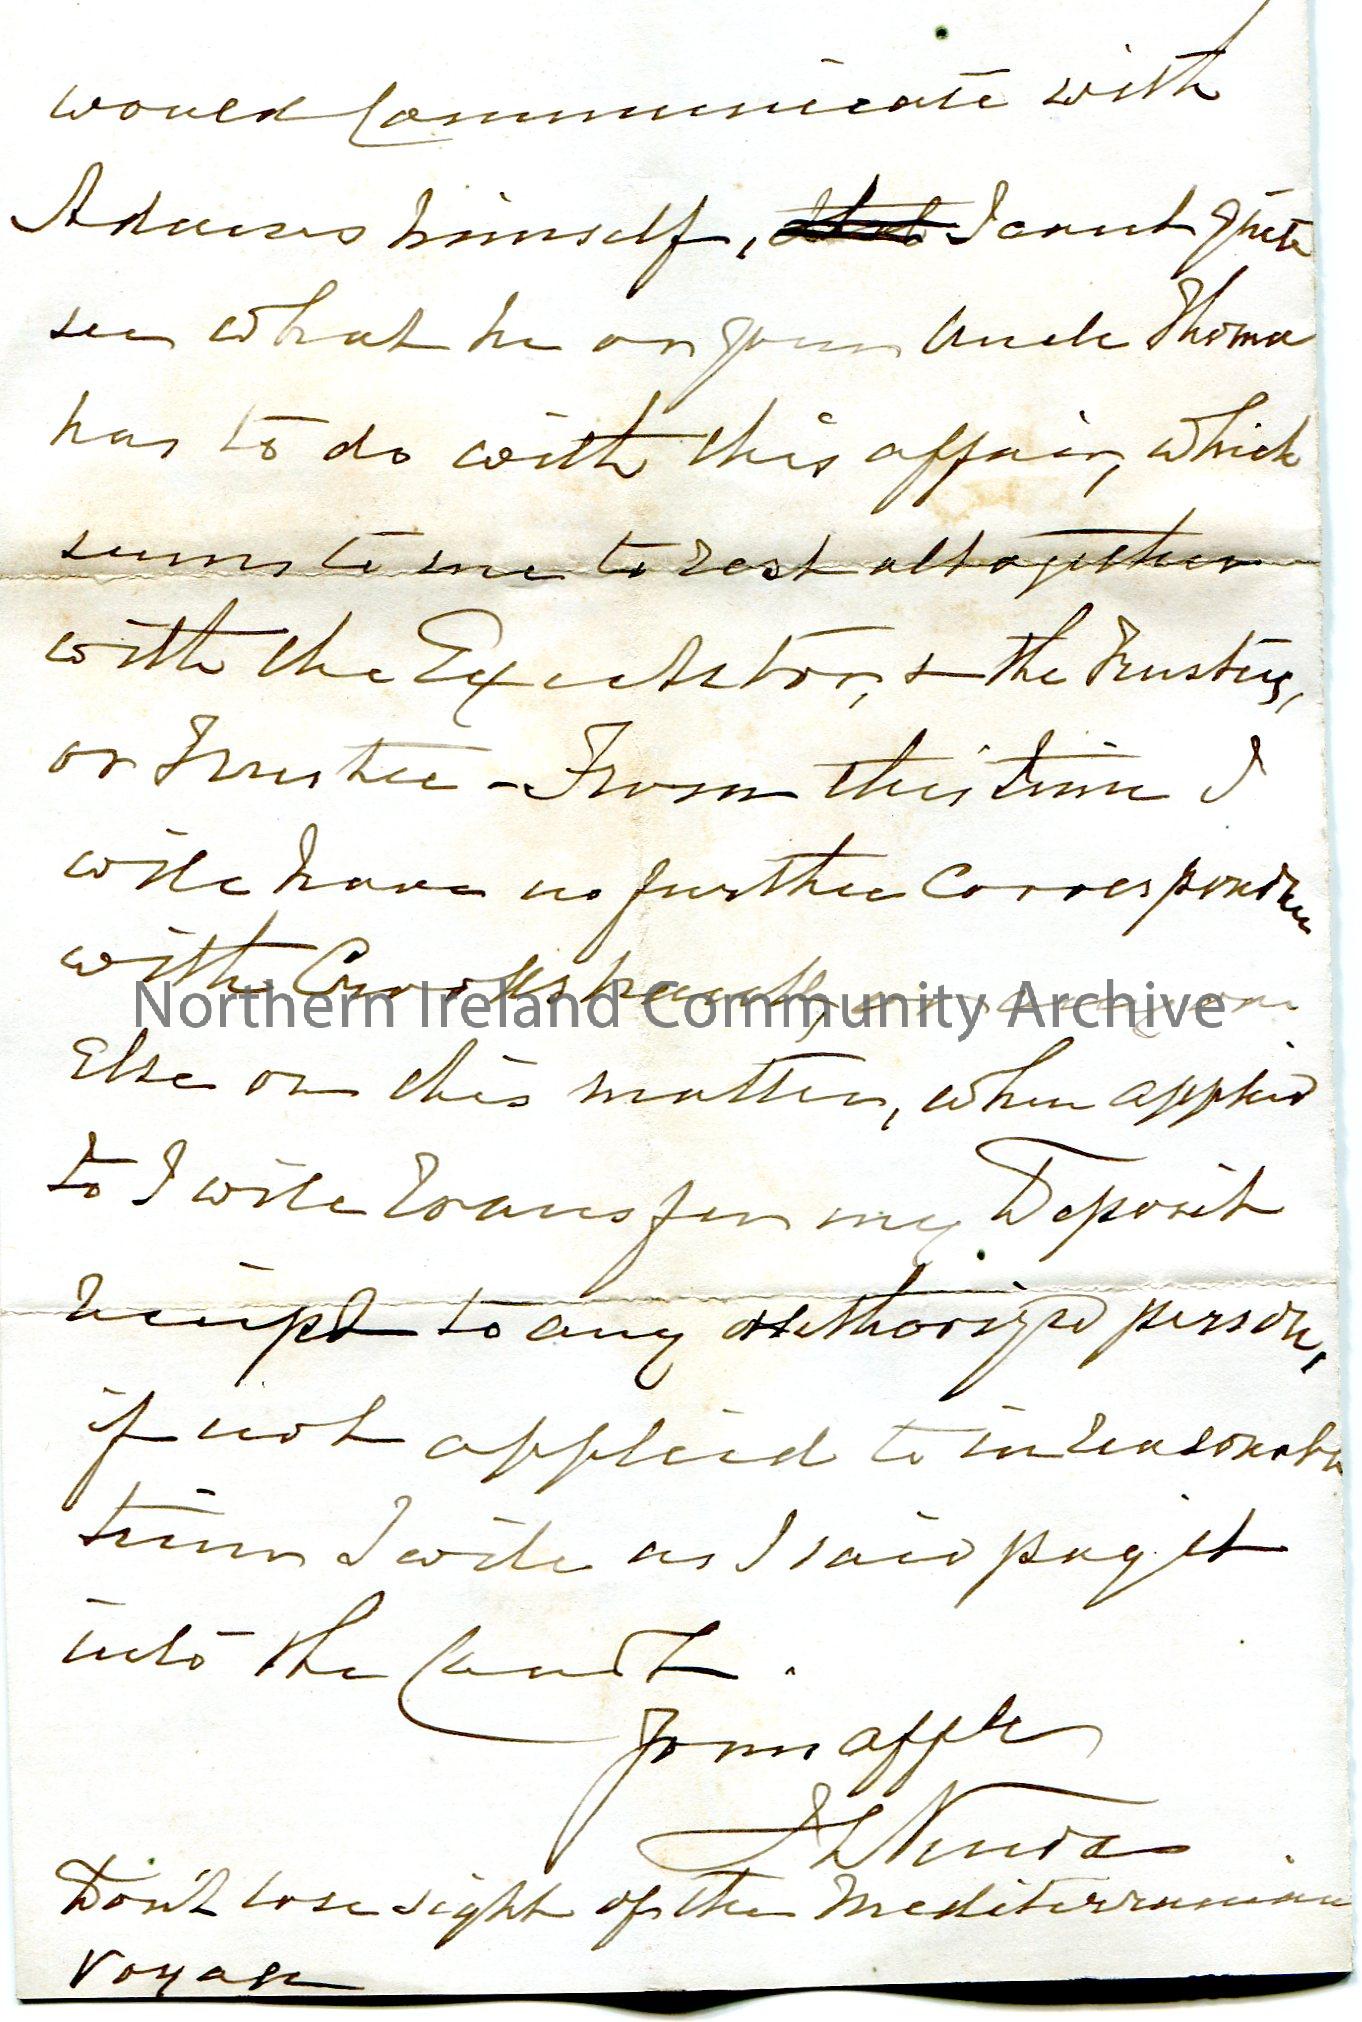 would Communicate with
Adams himself, I cant quite
see what he or your Uncle Thomas
has to do with this affair, which
seems to me to rest altogether
with the Executors, & the Trustees,
or Trustee - From this time I
will have no further Correspondence
with Crookshank, or anyone
Else on this matter, when applied
to I will transfer my Deposit
receipt to any authorized person,
if not applied to in reasonable
time I will as I said pay it
into the Court.
Your affte
Don't lose sight of the Mediterranean
Voyage
Northern Ireland Community Archive